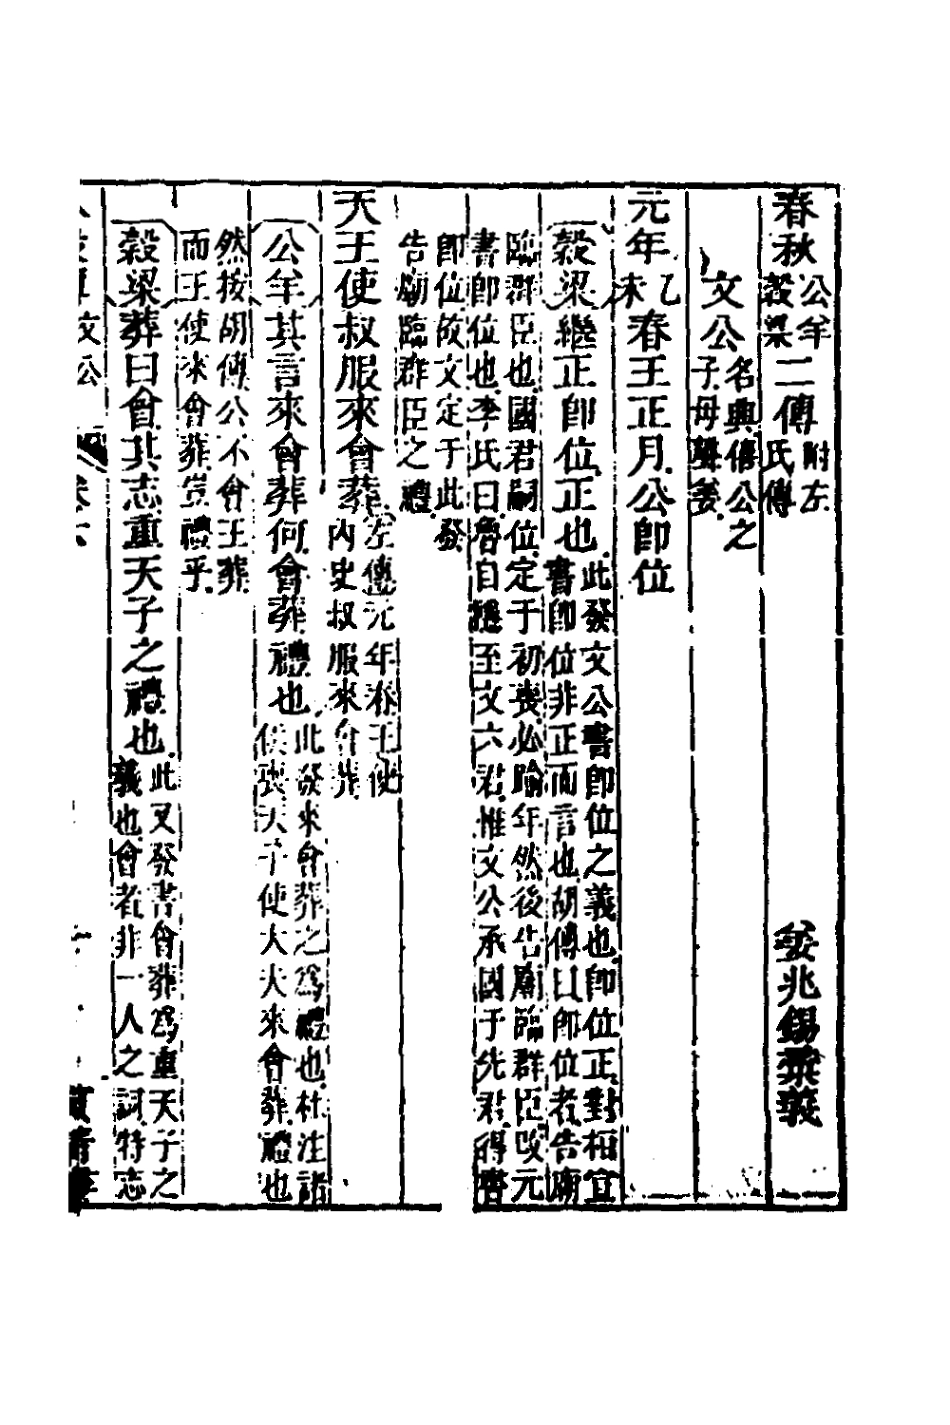 春秋公羊穀梁二傳附左氏傳 姜兆錫彙義
文公名興僖公之子母聲姜
元年乙未春王正月公卽位
穀梁繼正卽位正也此發文公書卽位之義也卽位正對桓宣書卽位非正而言也胡傳曰卽位者告廟
臨群臣也國君嗣位定于初喪必踰年然後告廟臨群臣改元書卽位也李氏曰魯自隱至文六君惟文公承國于先君得書
卽位故文定于此發告廟臨群臣之禮
天王使叔服來會葬左傳元年春王使內史叔服來會葬
公羊其言來會葬何會葬禮也此發來會葬之爲禮也杜注諸侯喪天子使大夫來會葬禮也
然按胡傳公不會王葬而王使來會葬豈禮乎
穀梁葬曰會其志重天子之禮也此又發書會葬爲重天子之義也會者非一人之詞特志
文公